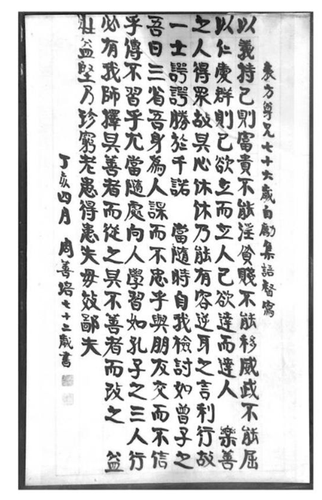 表方尊兄七十六歲自勵集語督寫
以義持己則富貴不能淫貧賤不能移威武不能屈
以仁處群則己欲立而立人己欲達而達人 樂善
之人得眾故其心休休乃能有容逆耳之言利行故
一士諤諤勝於千諾 當隨時自我檢討如曾子之
吾日三省吾身為人謀而不忠乎與朋友交而不信
乎傳不習乎尤當隨處向人學習如孔子之三人行
必有我師擇其善者而從之其不善者而改之 益
壯益堅乃珍窮老患得患失毋效鄙夫
丁亥四月 周善培七十三歲書